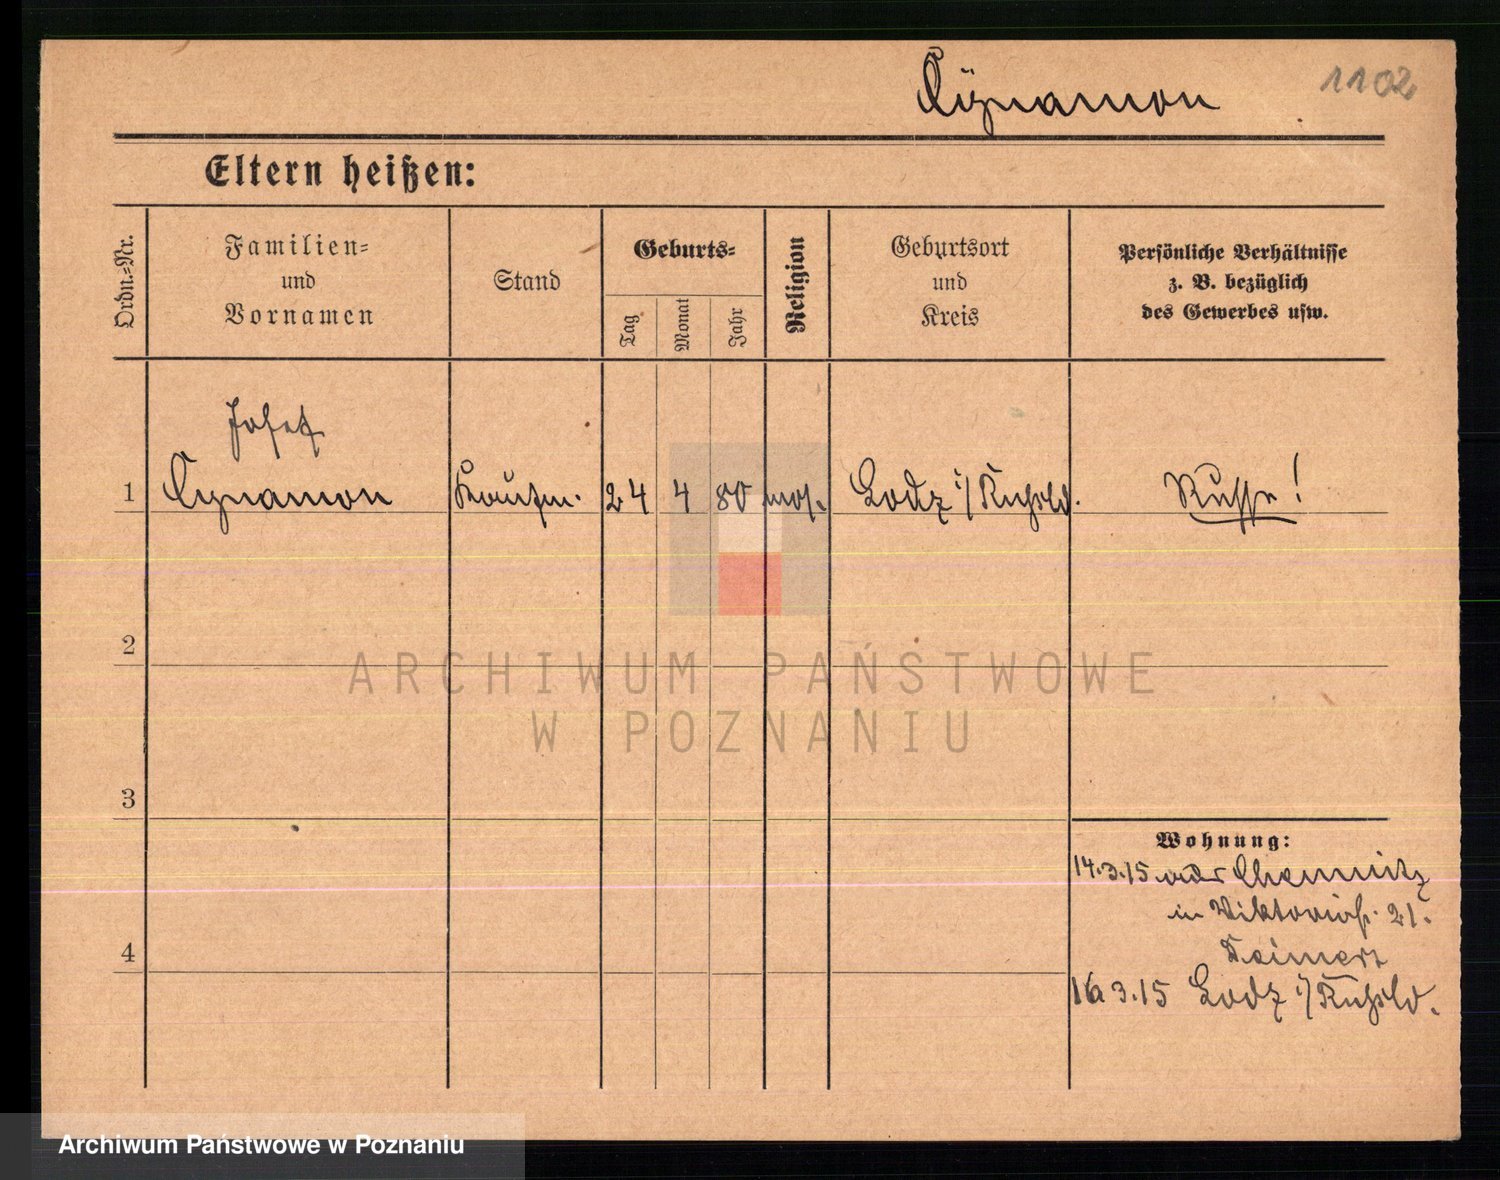 Cynamon
1102
Eltern heißen:
Ordn.=Nr.
Familien=
und
Vornamen
Stand
Geburts=
Tag
Monat
Jahr
Religion
Geburtsort
und
Kreis
Persönliche Verhältnisse
z. B. bezüglich
des Gewerbes usw.
Josef
1 Cynamon Kaufm. 24 4 80 mos. Lodz i/Rußld. Russe!
2
ARCHIWUM PAŃSTWOWE
W POZNANIU
3
Wohnung:
14.3.15 Chemnitz
in Viktoriastr. 21.
4
16 3.15 Lodz i/Rußld.
Archiwum Państwowe w Poznaniu